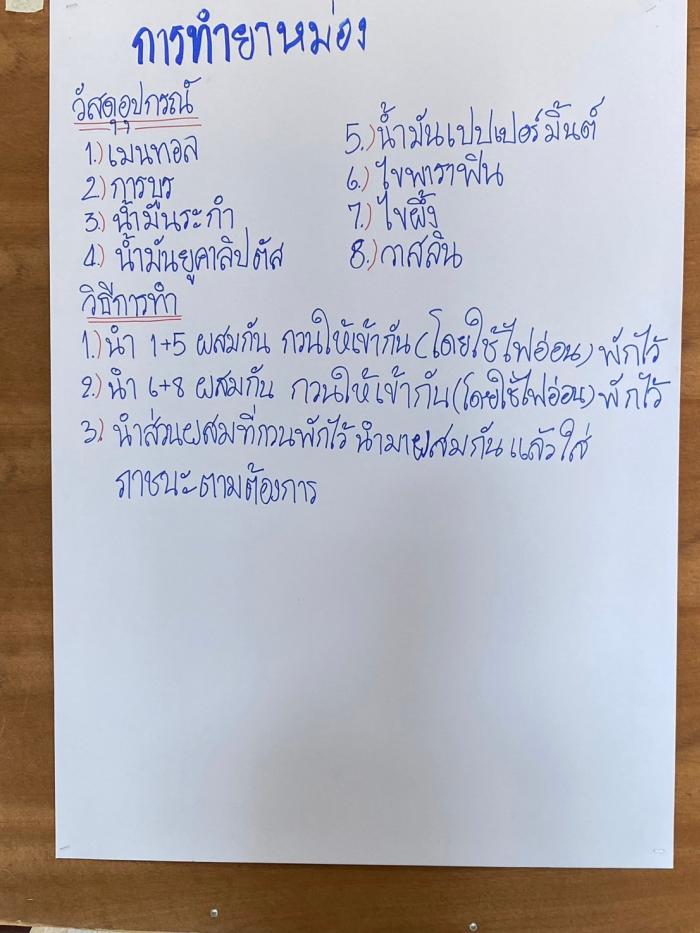 การทำยาหม่อง
วัสดุอุปกรณ์
1.) เมนทอล
2.) การบูร
3.) น้ำมันระกำ
4.) น้ำมันยูคาลิปตัส
5.) น้ำมันเปปเปอร์มิ้นต์
6.) ไขพาราฟิน
7.) ไขผึ้ง
8.) วาสลิน
วิธีการทำ
1.) นำ 1+5 ผสมกัน กวนให้เข้ากัน (โดยใช้ไฟอ่อน) พักไว้
2.) นำ 6+8 ผสมกัน กวนให้เข้ากัน (โดยใช้ไฟอ่อน) พักไว้
3.) นำส่วนผสมที่กวนพักไว้ นำมาผสมกัน แล้วใส่
ภาชนะตามต้องการ